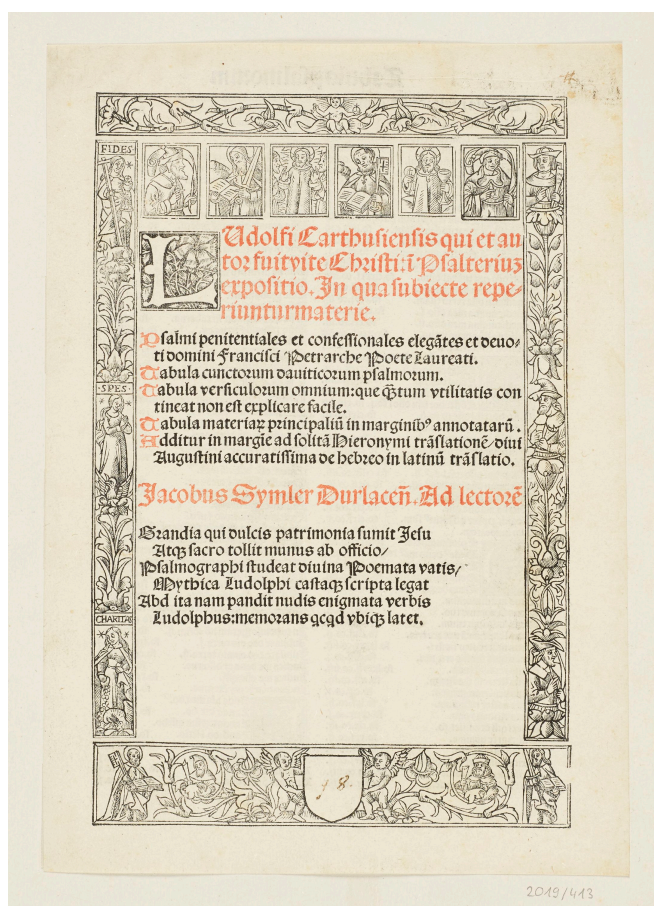 FIDES
LUdolfi Carthusiensis qui et au
tor fuit vite Christi: ī Psalteriuʒ
expositio. In qua subiecte repe-
riuntur materie.
Psalmi penitentiales et confessionales elegātes et deuo-
ti domini Francisci Petrarche Poete Laureati.
Tabula cunctorum dauiticorum psalmorum.
Tabula versiculorum omnium: que q̄tum vtilitatis con
tineat non est explicare facile.
Tabula materiaꝝ principaliū in marginibꝰ annotatarū.
Additur in margīe ad solitā Hieronymi trāslationē/ diui
Augustini accuratissima de hebreo in latinū trāslatio.
·SPES·
Jacobus Symler Durlaceñ. Ad lectorē
Grandia qui dulcis patrimonia sumit Jesu
Atqꝫ sacro tollit munus ab officio/
Psalmographi studeat diuina Poemata vatis/
Mythica Ludolphi castaqꝫ scripta legat
Abd ita nam pandit nudis enigmata verbis
Ludolphus: memorans qcqd vbiqꝫ latet.
CHARITAS
18.
2019/413